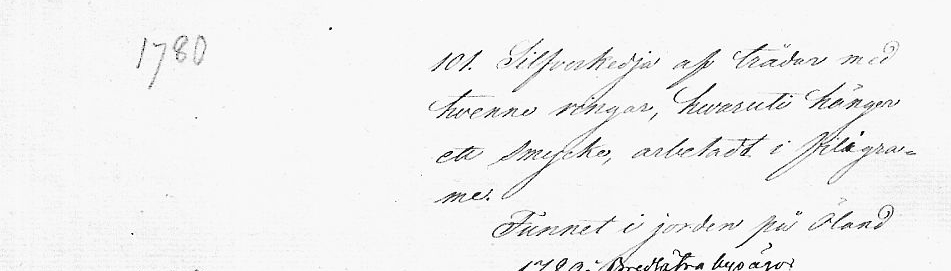 1780
101. Silfverkedja af trådar med
tvenne ringar, hvaruti hänger
ett smycke, arbetadt i filigra=
me.
Funnet i jorden på Öland
1780 i Bredsätra by